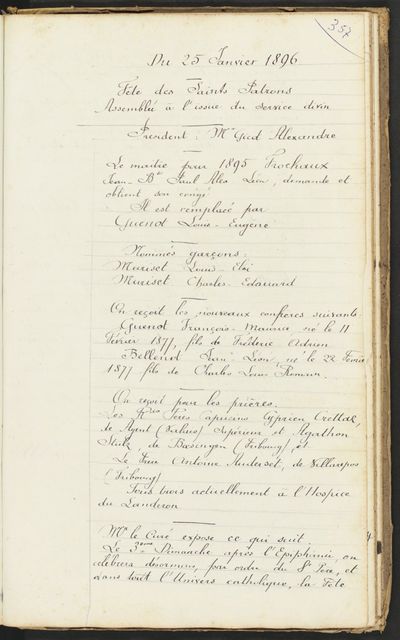 357
Du 25 Janvier 1896
Fête des Saints Patrons
Assemblée à l'issue du service divin
Président: Mr Gicot Alexandre
Le maître pour 1895 Frochaux
Jean-Bte Paul Alex Léon, demande et
obtient son congé.
Il est remplacé par
Quenod Louis-Eugène
Nommés garçons:
Muriset Louis-Eloi
Muriset Charles-Edouard
On reçoit les nouveaux confrères suivants
Guenot François-Maurice, né le 11
Février 1877, fils de Frédéric Adrien
Bellenot Jean-Léon, né le 22 Février
1877 fils de Charles Louis Romain.
On reçoit pour les prières.
Les Pères Capucins Cyprien Crettaz,
de Ayent (Valais) Supérieur et Agathon
de Bösingen (Fribourg), et
Le Frère Antoine Anderset, de Villarepos
(Fribourg)
Tous trois actuellement à l'Hospice
du Landeron
Mr le Curé expose ce qui suit.
Le 3me Dimanche après l'Epiphanie, on
célébrera désormais, par ordre du St Père, et
dans tout l'Univers catholique, la Fête